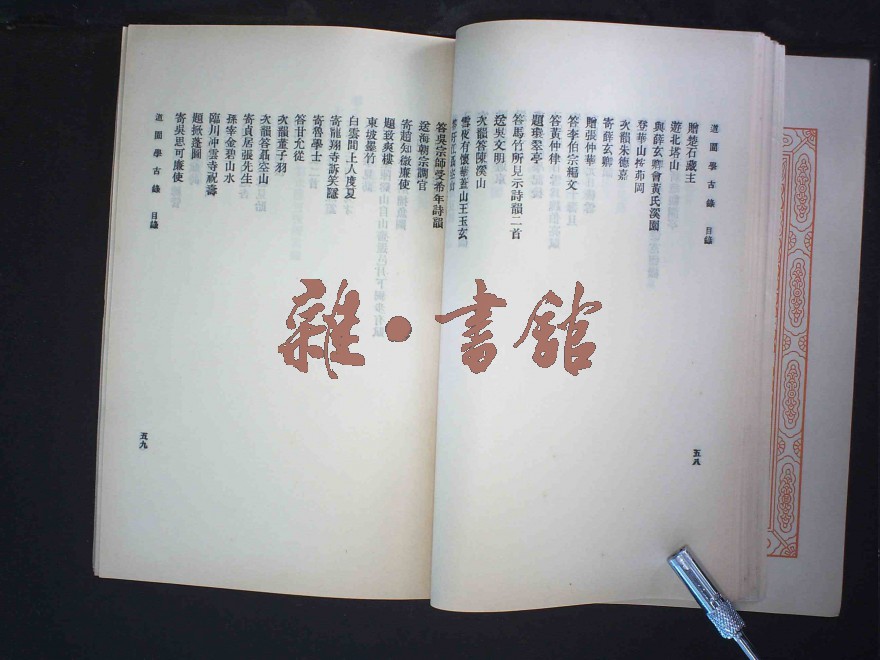 道園學古錄 目錄
贈楚石藏主
遊北塔山
與薛玄卿會黃氏溪園
登華山按茆岡
次韻朱德嘉
寄薛玄卿
贈張仲華
答李伯宗編文
答黃仲律
題環翠亭
答馬竹所見示詩韻二首
送吳文明
次韻答陳溪山
雪夜有懷華蓋山王玉玄
五八
答吳宗師受希年詩韻
送海朝宗調官
寄趙知微廉使
題致爽樓
東坡墨竹
白雲間上人度夏
寄龍翔寺訢笑隱
寄魯學士二首
答甘允從
次韻董子羽
次韻答聶空山
寄貞居張先生
孫宰金碧山水
臨川沖雲寺祝壽
題掀蓬圖
寄吳思可廉使
道園學古錄 目錄
五九
雜·書館